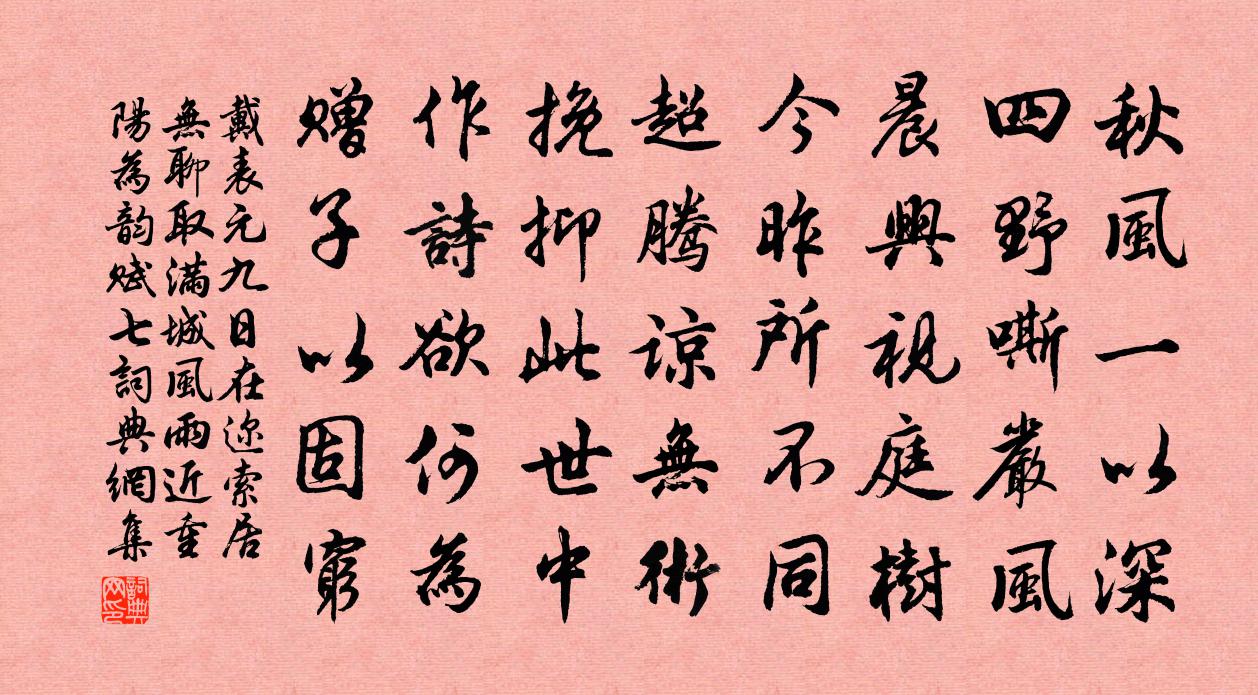 秋風一以深
四野嘶嚴風
晨興視庭樹
今昨所不同
超騰諒無術
挽抑此世中
作詩欲何為
贈子以固窮
戴表元九日在迩索居
無聊取滿城風雨近重
陽為韵賦七詞典網集
詞典網印